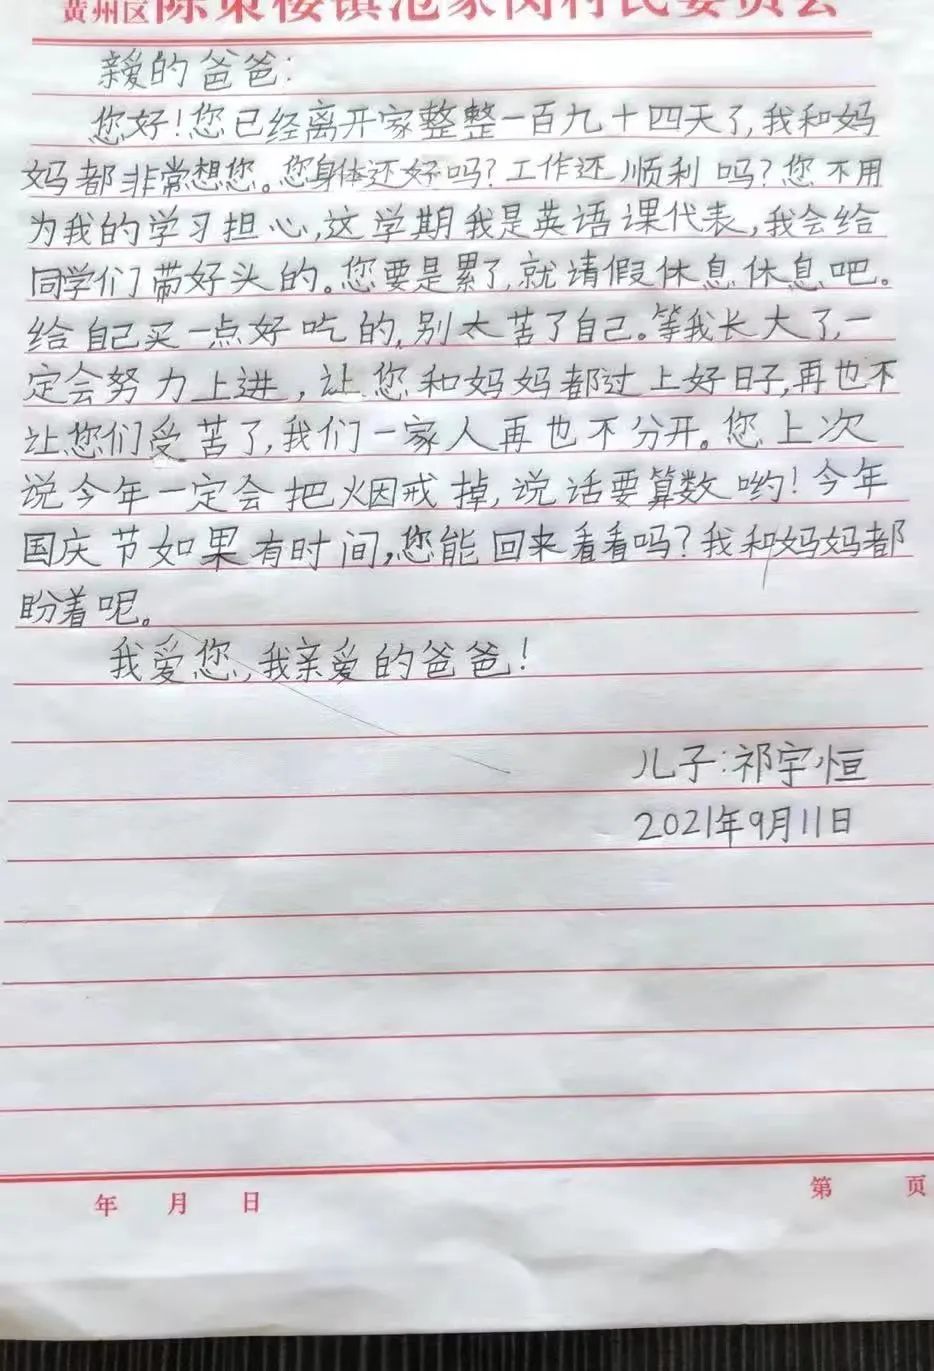 黄州区陈策楼镇范家岗村民委员会
亲爱的爸爸:
您好!您已经离开家整整一百九十四天了,我和妈
妈都非常想您。您身体还好吗?工作还顺利吗?您不用
为我的学习担心,这学期我是英语课代表,我会给
同学们带好头的。您要是累了,就请假休息休息吧。
给自己买一点好吃的,别太苦了自己。等我长大了,一
定会努力上进,让您和妈妈都过上好日子,再也不
让您们受苦了,我们一家人再也不分开。您上次
说今年一定会把烟戒掉,说话要算数哟!今年
国庆节如果有时间,您能回来看看吗?我和妈妈都
盼着呢。
我爱您,我亲爱的爸爸!
儿子:祁宇恒
2021年9月11日
年 月 日 第 页